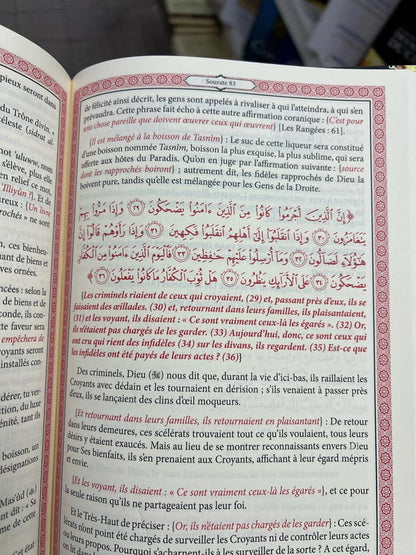 pieux seront dans
du Trône divin,
céleste (sidrat al-
Sourate 83
de félicité ainsi décrit, les gens sont appelés à rivaliser à qui l'atteindra, à qui s'en
prévaudra. Cette phrase fait écho à cette autre affirmation coranique : {C'est pour
une chose pareille que doivent œuvrer ceux qui œuvrent} [Les Rangées : 61].
{Il est mélangé à la boisson de Tasnîm} : Le suc de cette liqueur sera constitué
d'une boisson nommée Tasnîm, boisson la plus exquise, la plus sublime, qui sera
offerte aux hôtes du Paradis. Qu'on en juge par l'affirmation suivante : {source
dont les rapprochés boiront} ; autrement dit, les fidèles rapprochés de Dieu la
boivent pure, tandis qu'elle est mélangée pour les Gens de la Droite.
﴿إِنَّ ٱلَّذِينَ أَجْرَمُوا۟ كَانُوا۟ مِنَ ٱلَّذِينَ ءَامَنُوا۟ يَضْحَكُونَ ٢٩ وَإِذَا مَرُّوا۟ بِهِمْ
يَتَغَامَزُونَ ٣٠ وَإِذَا ٱنقَلَبُوٓا۟ إِلَىٰٓ أَهْلِهِمُ ٱنقَلَبُوا۟ فَكِهِينَ ٣١ وَإِذَا رَأَوْهُمْ قَالُوٓا۟ إِنَّ
هَٰٓؤُلَآءِ لَضَآلُّونَ ٣٢ وَمَآ أُرْسِلُوا۟ عَلَيْهِمْ حَٰفِظِينَ ٣٣ فَٱلْيَوْمَ ٱلَّذِينَ ءَامَنُوا۟ مِنَ ٱلْكُفَّارِ
يَضْحَكُونَ ٣٤ عَلَى ٱلْأَرَآئِكِ يَنظُرُونَ ٣٥ هَلْ ثُوِّبَ ٱلْكُفَّارُ مَا كَانُوا۟ يَفْعَلُونَ ٣٦﴾
{Les criminels riaient de ceux qui croyaient, (29) et, passant près d'eux, ils se
faisaient des œillades. (30) et, retournant dans leurs familles, ils plaisantaient,
(31) et les voyant, ils disaient : « Ce sont vraiment ceux-là les égarés ». (32) Or,
ils n'étaient pas chargés de les garder. (33) Aujourd'hui, donc, ce sont ceux qui
ont cru qui rient des infidèles (34) sur les divans, ils regardent. (35) Est-ce que
les infidèles ont été payés de leurs actes ? (36)}
Des criminels, Dieu (ﷻ) nous dit que, durant la vie d'ici-bas, ils raillaient les
Croyants avec dédain et les tournaient en dérision ; s'ils venaient à passer près
d'eux, ils se lançaient des clins d'œil moqueurs.
{Et retournant dans leurs familles, ils retournaient en plaisantant} : De retour
dans leurs demeures, ces scélérats trouvaient tout ce qu'ils voulaient, tous leurs
désirs y étaient exaucés. Mais au lieu de se montrer reconnaissants envers Dieu
pour Ses bienfaits, ils s'en prenaient aux Croyants, affichant à leur égard mépris
et envie.
{Et les voyant, ils disaient : « Ce sont vraiment ceux-là les égarés »}, et ce pour
la seule raison qu'ils ne partageaient pas leur foi.
Et le Très-Haut de préciser : {Or, ils n'étaient pas chargés de les garder} : Ces scé-
lérats n'étaient pas chargés de surveiller les Croyants ni de contrôler leurs actes